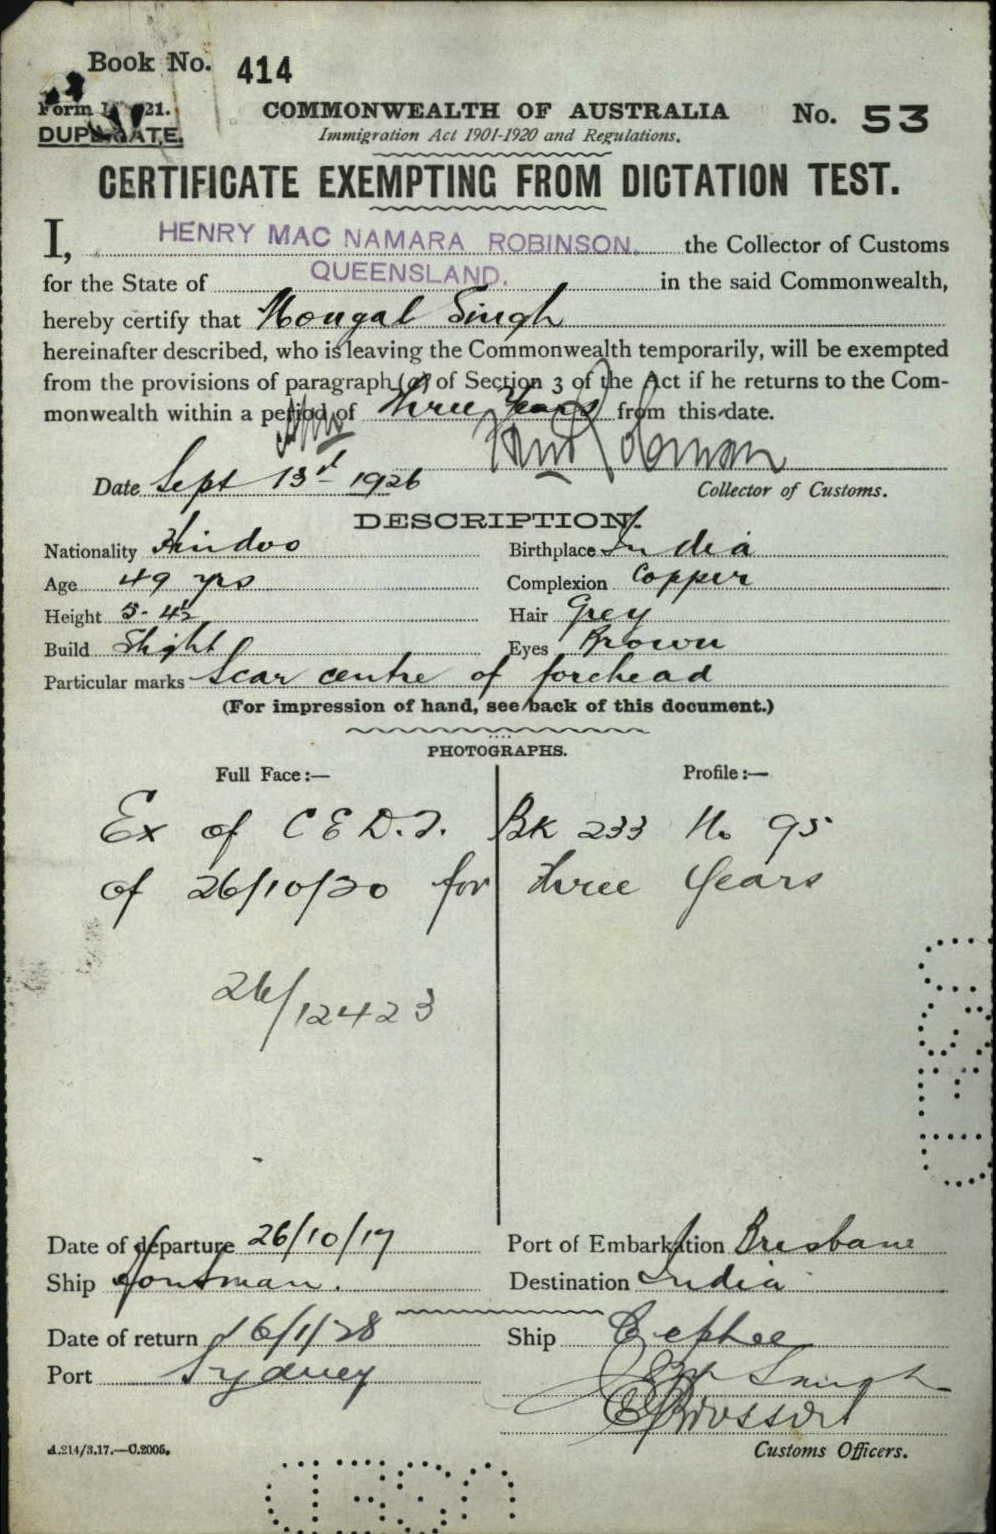 Book No. 414
Form 21.
DUPLICATE.
COMMONWEALTH OF AUSTRALIA
No. 53
Immigration Act 1901-1920 and Regulations.
CERTIFICATE EXEMPTING FROM DICTATION TEST.
I, HENRY MAC NAMARA ROBINSON. the Collector of Customs
for the State of QUEENSLAND. in the said Commonwealth,
hereby certify that Mougal Singh
hereinafter described, who is leaving the Commonwealth temporarily, will be exempted
from the provisions of paragraph (a) of Section 3 of the Act if he returns to the Com-
monwealth within a period of three Years from this date.
Date Sept 13d 1926
Collector of Customs.
DESCRIPTION.
Nationality Hindoo Birthplace India
Age 49 yrs Complexion Copper
Height 5-4½ Hair Grey
Build Slight Eyes Brown
Particular marks Scar centre of forehead
(For impression of hand, see back of this document.)
PHOTOGRAPHS.
Full Face:— Profile:—
Ex of C E D.T. Bk 233 No 95
of 26/10/20 for three Years
26/12423
Date of departure 26/10/17 Port of Embarkation Brisbane
Ship Destination India
Date of return 16/1/28 Ship
Port Sydney
Singh
A.214/3.17.—C.2005.
Customs Officers.